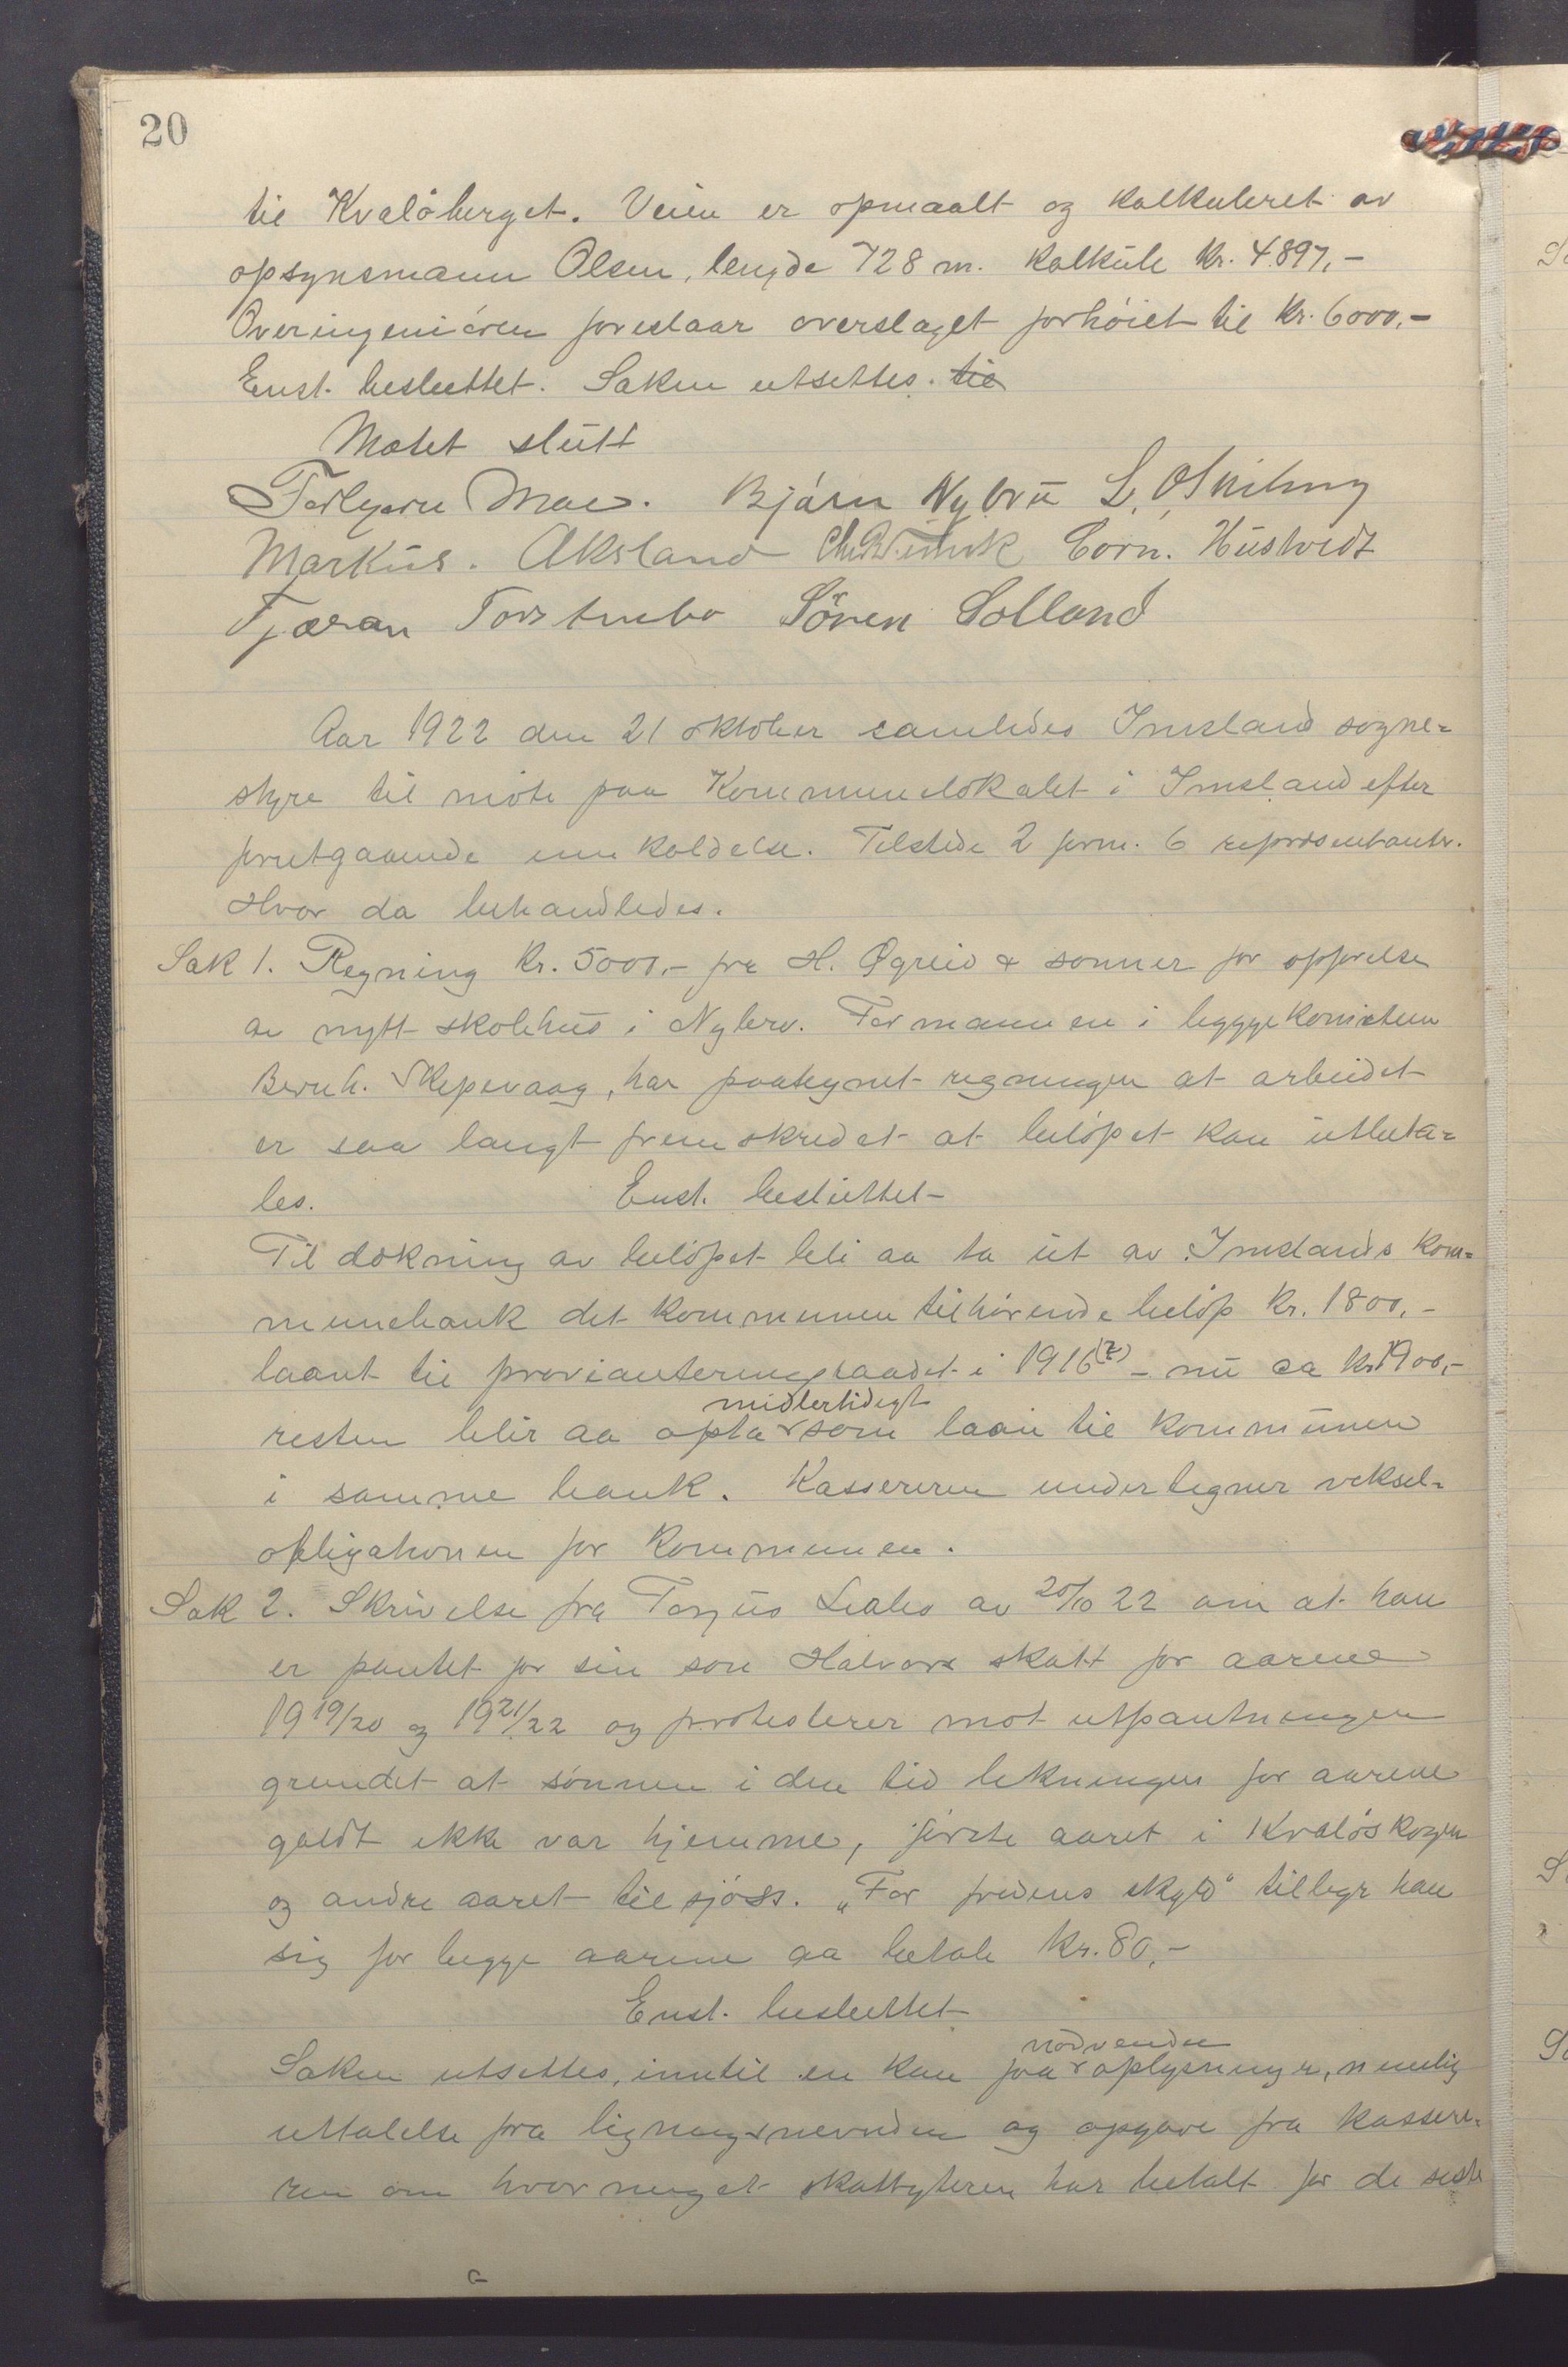 20
til Kvaløberget. Veien er opmaalt og kalkuleret av
opsynsmann Olsen, lengde 728 m. kalkule kr. 4.897,-
Overingeniøren foreslaar overslaget forhøiet til kr. 6000,-
Enst. besluttet. Saken utsettes. til
Møtet slutt
Mæ. Bjørn Nybru L. O.
Markus. Aksland Corn. Hustvedt
Tjæran Søren Solland
Aar 1922 den 21 oktober samledes Imsland sogne=
styre til møte paa Kommunelokalet i Imsland efter
forutgaaende innkaldelse. Tilstede 2 form. 6 representanter.
Hvor da behandledes.
Sak 1. Regning kr. 5000,- fra H. Øgreid & sønner for opførelse
av nytt skolehus i Nybru. Formannen i byggekomiteen
Bernh. Skipevaag, har paategnet regningen at arbeidet
er saa langt fremskredet at beløpet kan utbeta=
les. Enst. besluttet
Til dekning av beløpet bli aa ta ut av Imslands kom=
munebank det kommunen tilhørende beløp kr. 1800,-
laant til provianteringsraadet i 1916(7) - nu ca kr. 1900,-
midlertidigt
resten blir aa opta som laan til kommunen
i samme bank. Kassereren undertegner veksel=
obligationen for kommunen.
Sak 2. Skrivelse fra Torjus av 20/10 22 om at han
er pantet for sin søn Halvors skatt for aarene
19 19/20 og 19 21/22 og protesterer mot utpantningen
grundet at sønnen i den tid likningen for aarene
galdt ikke var hjemme, første aaret i Kvaløskogen
og andre aaret til sjøss. "For fredens skyld" tilbyr han
sig for begge aarene aa betale kr. 80,-
Enst. besluttet
nødvendige
Saken utsettes, inntil en kan faa oplysninger, nemlig
uttalelse fra ligningsnevnden og opgave fra kassere=
ren om hvor meget skattyteren har betalt for de siste